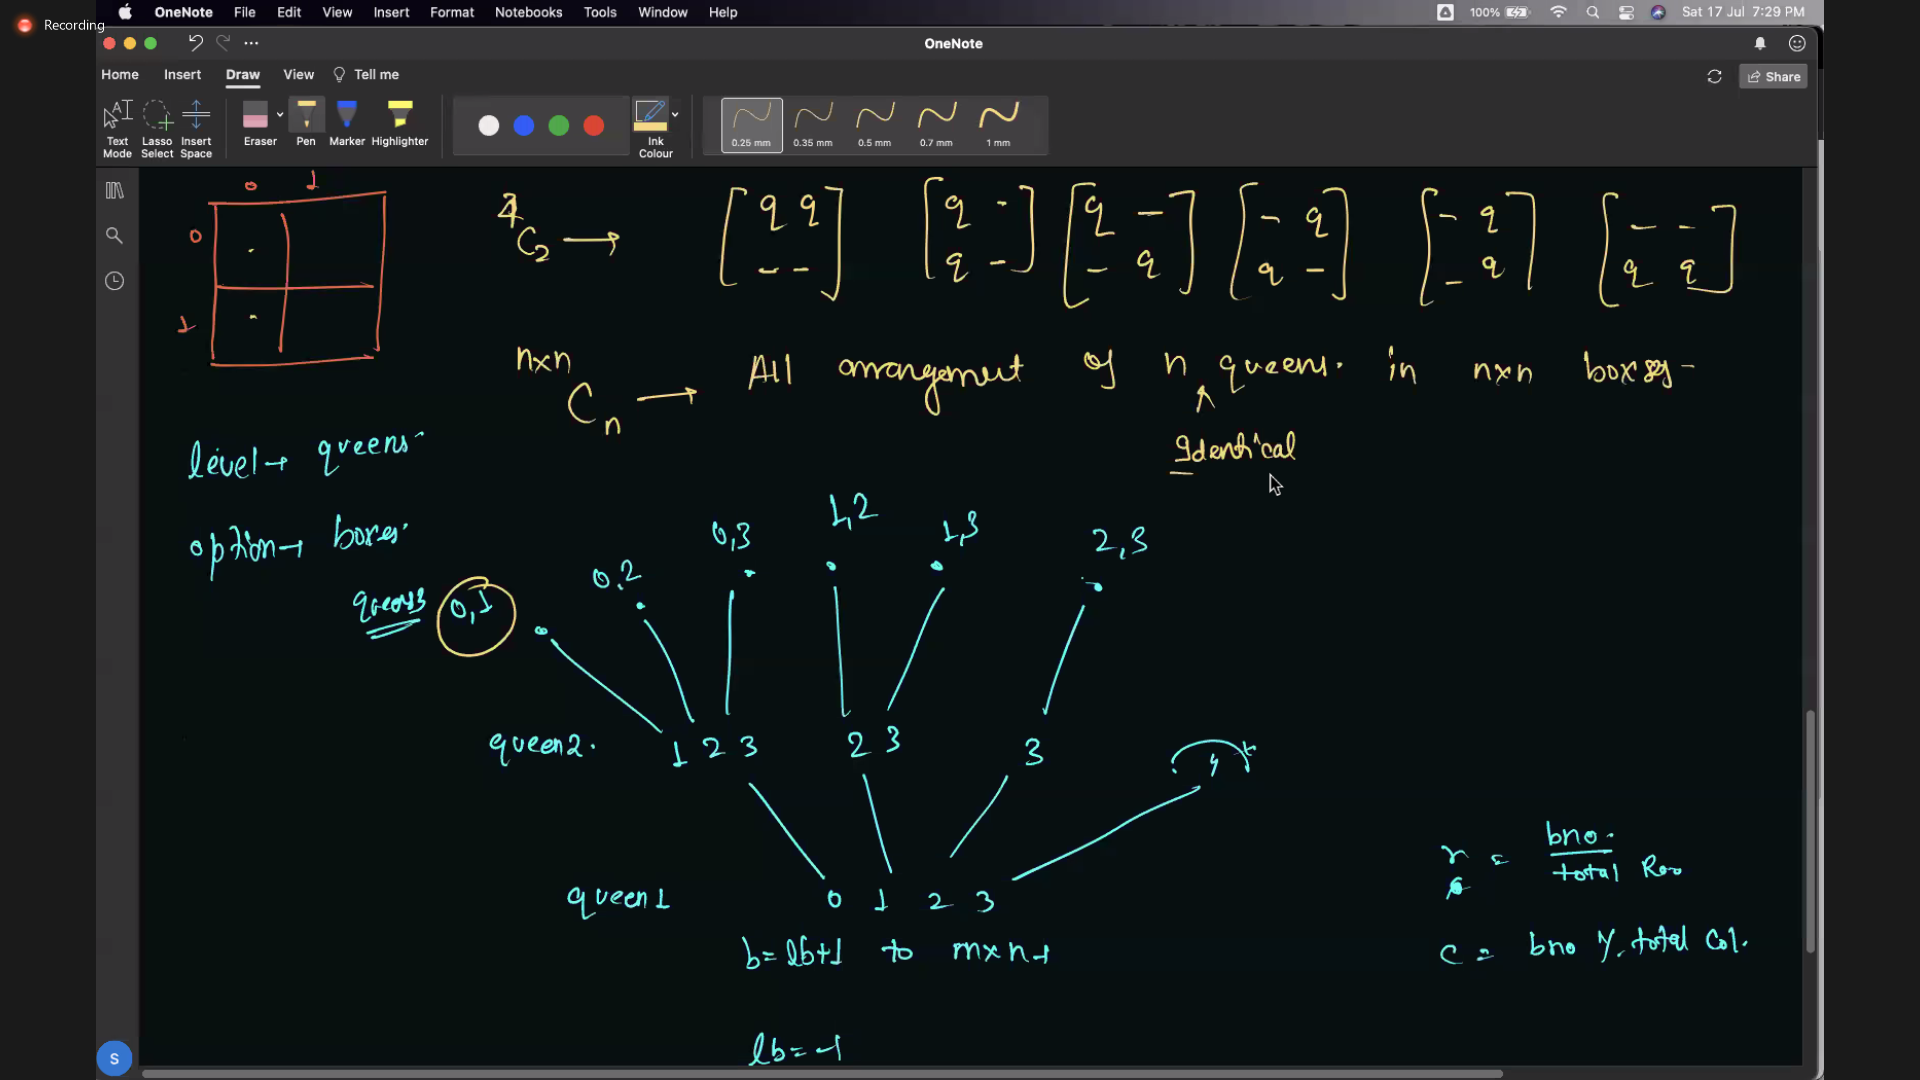 Recording
OneNote File Edit View Insert Format Notebooks Tools Window Help
100% Sat 17 Jul 7:29 PM
OneNote
Home Insert Draw View Tell me
Share
Text Mode
Lasso Select
Insert Space
Eraser
Pen
Marker
Highlighter
Ink Colour
0.25 mm
0.35 mm
0.5 mm
0.7 mm
1 mm
0 1
0
1
4C2 →
q q
- -
q -
q -
q -
- q
- q
q -
- q
- q
- -
q q
nxn Cn → All arrangement of n queens. in nxn boxes -
Identical
level → queens.
option → boxes.
queens 0,1
0,2
0,3
1,2
1,3
2,3
queen2. 1 2 3 2 3 3 4
queen1 0 1 2 3
b = lb+1 to mxn-1
lb = -1
r = bno. / total
c = bno % total Col.
S